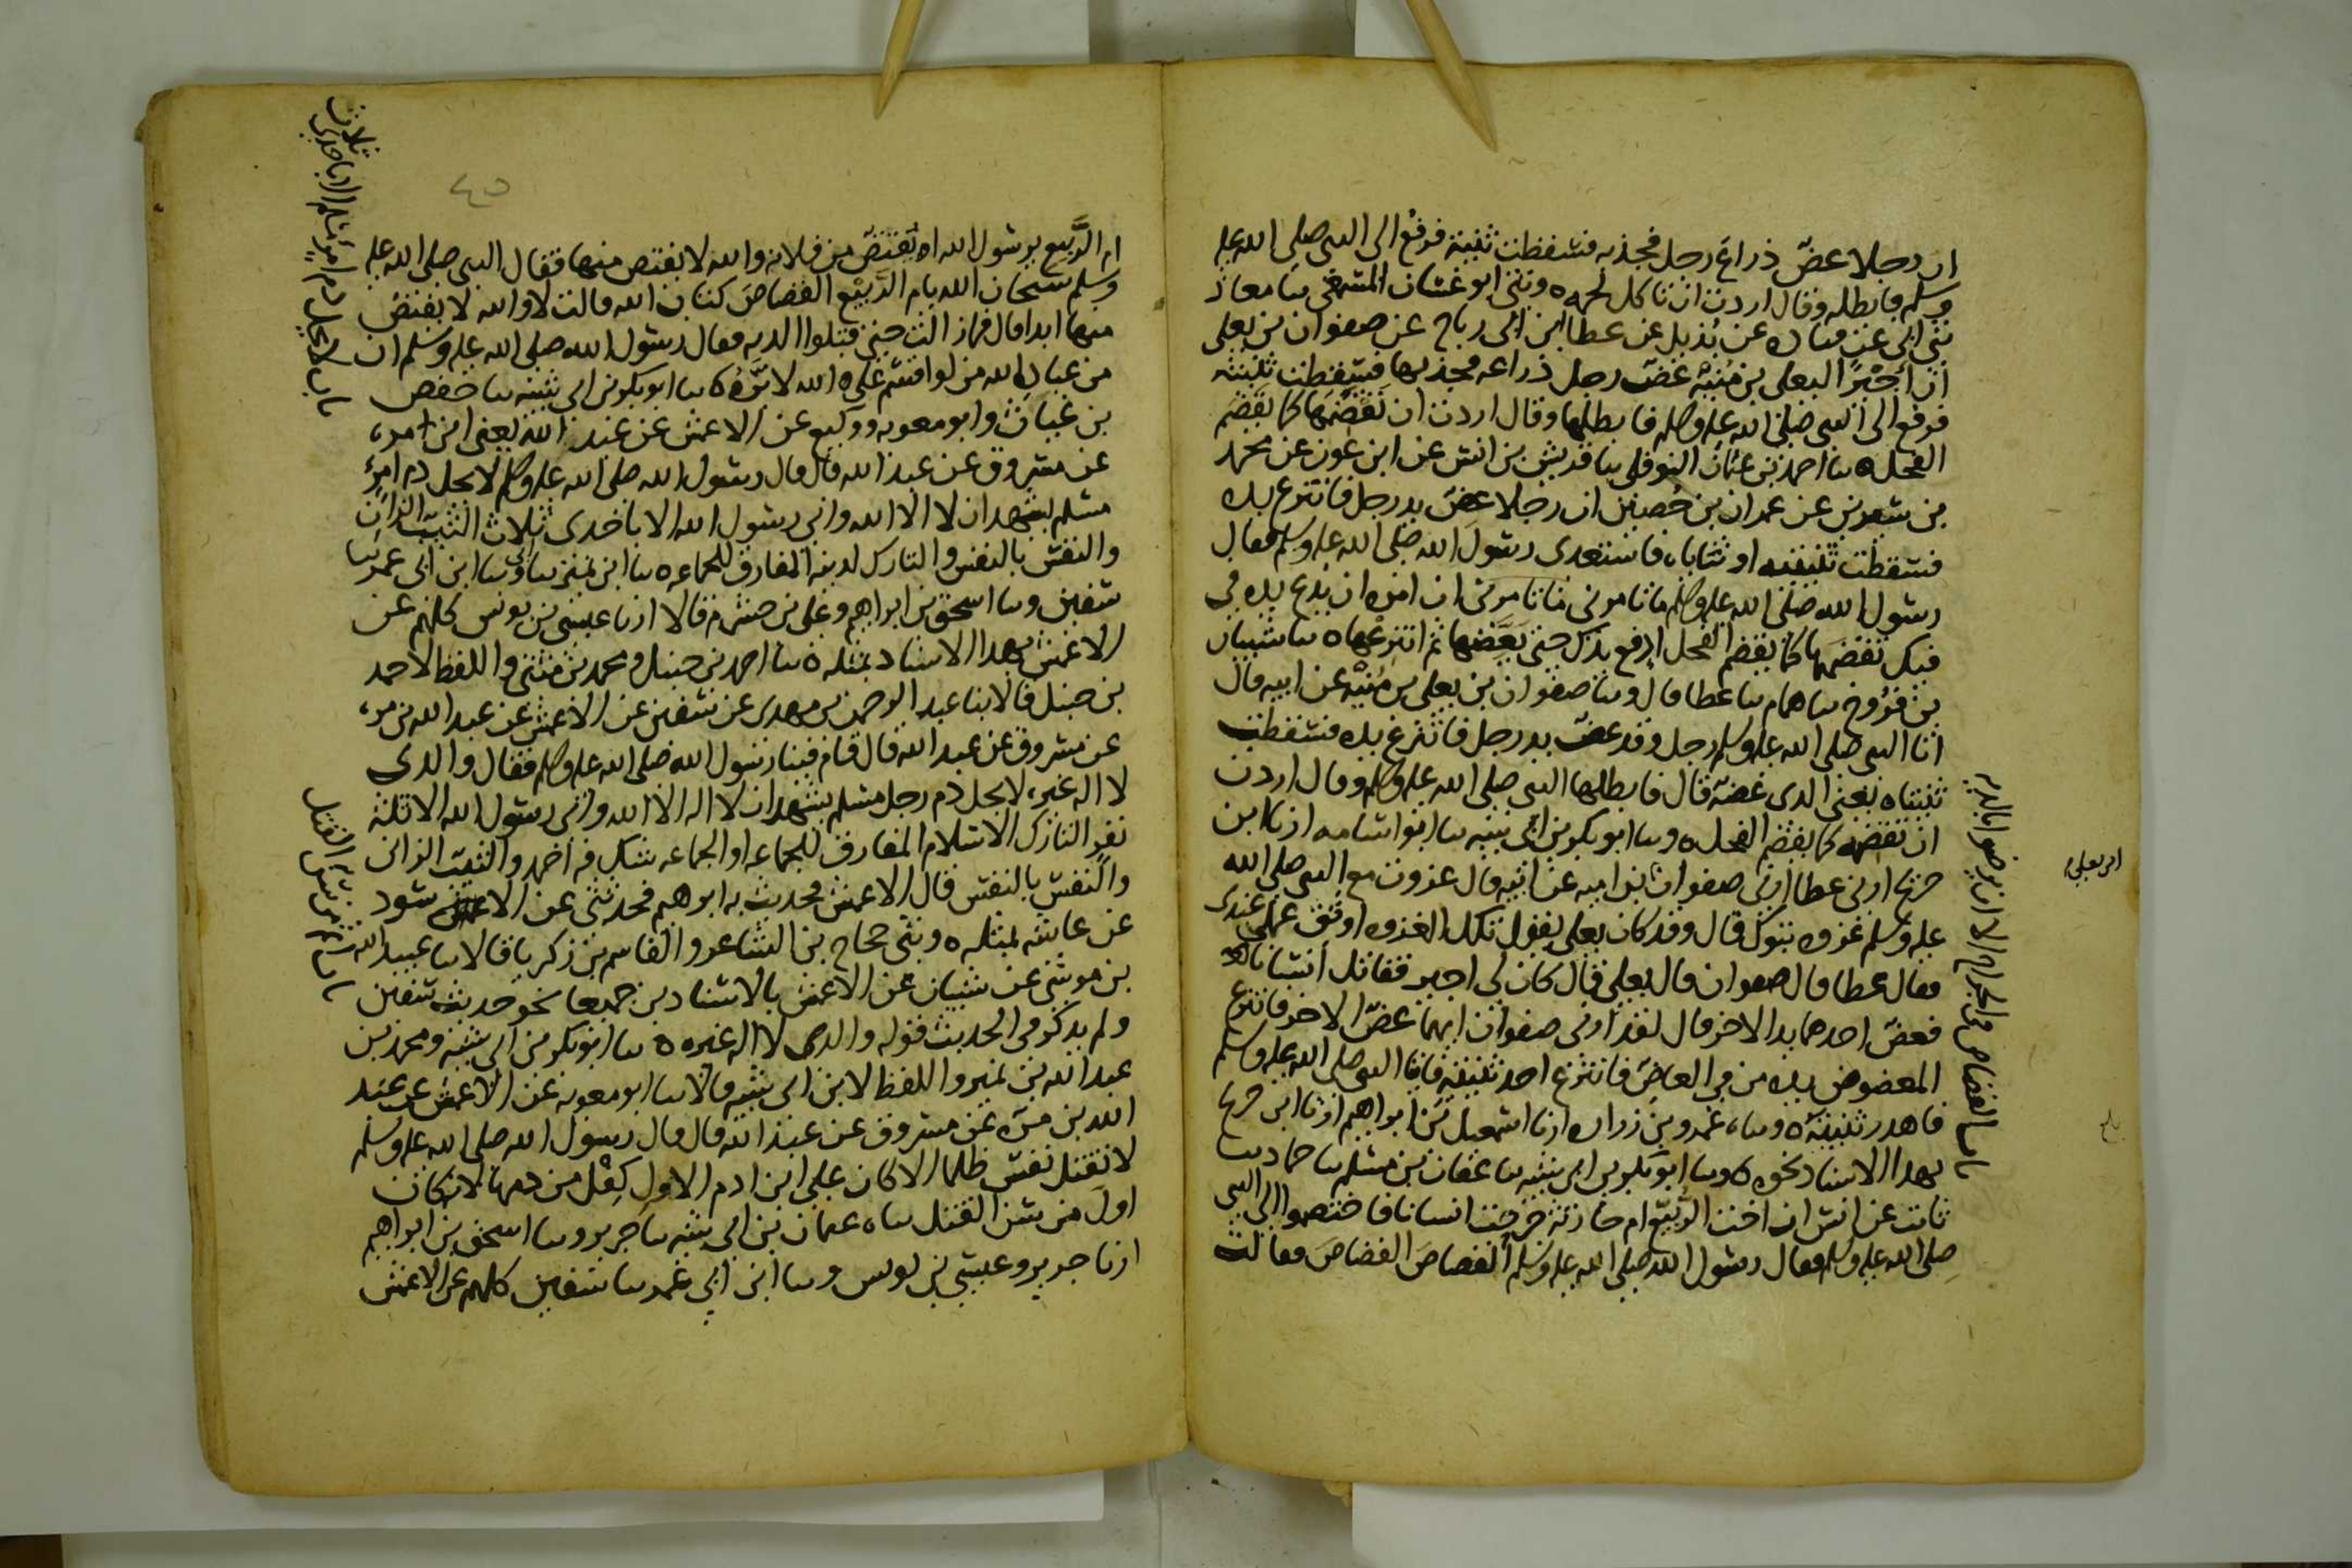 ان رجلا عضّ ذراع رجل فجذبه فسقطت ثنيته فرفع الى النبى صلى الله عليه
وسلم فابطله وقال اردت ان تاكل لحمه ه وثنى ابو غسان المسمعى ثنا معاذ
ثنى ابى عن قتاده عن بُديل عن عطا ابن ابى رباح عن صفوان بن يعلى
ان أجيرًا ليعلى بن مُنيه عضّ رجل ذراعه فجذبها فسقطت ثنيته
فرفع الى النبى صلى الله عليه وسلم فابطلها وقال اردت ان تقضَمها كما يقضَم
الفحل ه ثنا احمد بن عثمان النوفلى ثنا قريش بن انس عن ابن عون عن محمد
بن سيرين عن عمران بن حُصين ان رجلا عض يد رجل فانتزع يده
فسقطت ثنيته او ثناياه فاستعدى رسول الله صلى الله عليه وسلم فقال
رسول الله صلى الله عليه وسلم ما تامرنى تامرنى ان امره ان يدع يده فى
فيك تقضمها كما يقضم الفحل ادفع يدك حتى يعَضها ثم انتزعها ه ثنا شيبان
بن فرُوخ ثنا همام ثنا عطا قال وثنا صفوان بن يعلى بن مُنيْه عن ابيه قال
اتا النبى صلى الله عليه وسلم رجل وقد عضّ يد رجل فانتزع يده فسقطت
ثنيتاه يعنى الذى عضه قال فابطلها النبى صلى الله عليه وسلم وقال اردت
ان تقضمه كما يقضم الفحل ه وثنا ابو بكر بن ابى شيبه ثنا ابو اسامه ارنا ابن
جريج ارنى عطا ارنى صفوان بن اميه عن ابيه قال غزوت مع النبى صلى الله
عليه وسلم غزوه تبوك قال وقد كان يعلى يقول تلك الغزوه اوثق عملى عندى
فقال عطا قال صفوان قال يعلى قال كان لى اجير فقاتل أنسانا
فعض احدهما يد الاخر قال لقد ارنى صفوان ايهما عضّ الاخر فانتزع
المعضوض يده من فى العاضّ فانتزع احد ثنيتيه فاتيا النبى صلى الله عليه وسلم
فاهدر ثنيته ه وثناه عمرو بن زراره ارنا اسمعيل بن ابراهيم ارنا ابن جريج
بهذا الاسناد نحوه ه وثنا ابو بكر بن ابى شيبه ثنا عفان بن مسلم ثنا حماد ثنا
ثابت عن انس ان اخت الرُبيّع ام حارثة جرحت انسانا فاختصموا الى النبى
صلى الله عليه وسلم فقال رسول الله صلى الله عليه وسلم القصاصَ القصاصَ فقالت
باب القصاص فى الجراح الا ان يرضوا بالديه
ابن يعلى
بلغ
ام الرَّبيع يرسول الله أيُقتصّ من فلانه والله لا يقتص منها فقال النبى صلى الله عليه
وسلم سبحان الله يام الرَّبيع القصاص كتاب الله قالت لا والله لا يقتصُ
منها ابدا قال فما زالت حتى قبلوا الديه فقال رسول الله صلى الله عليه وسلم ان
من عباد الله من لو اقسم على الله لابرَّهُ ه ثنا ابو بكر بن ابى شيبه ثنا حفص
بن غياث وابو معويه ووكيع عن الاعمش عن عبد الله يعنى ابن مره
عن مسروق عن عبد الله قال قال رسول الله صلى الله عليه وسلم لا يحل دم امرئٍ
مسلم يشهد ان لا اله الا الله وانى رسول الله الا باحدى ثلاث الثيب الزان
والنفس بالنفس والتارك لدينه المفارق للجماعه ه ثنا ابن نمير ثنا ابى وثنا ابن ابى عمر ثنا
سفين وثنا اسحق بن ابراهيم وعلى بن خشرم قالا ارنا عيسى بن يونس كلهم عن
الاعمش بهذا الاسناد بمثله ه ثنا احمد بن حنبل ومحمد بن مثنى واللفظ لاحمد
بن حنبل قالا ثنا عبد الرحمن بن مهدى عن سفين عن الاعمش عن عبد الله بن مره
عن مسروق عن عبد الله قال قام فينا رسول الله صلى الله عليه وسلم فقال والذى
لا اله غيره لا يحل دم رجل مسلم يشهد ان لا اله الا الله وانى رسول الله الا ثلثة
نفرٍ التارك الاسلام المفارق للجماعه او الجماعه شك فيه احمد والثيب الزانى
والنفس بالنفس قال الاعمش فحدثت به ابراهيم فحدثنى عن الاسود
عن عايشه بمثله ه وثنى حجاج بن الشاعر والقاسم بن زكريا قالا ثنا عبيد الله
بن موسى عن شيبان عن الاعمش بالاسنادين جميعا نحو حديث سفين
ولم يذكر فى الحديث قوله والذى لا اله غيره ه ثنا ابو بكر بن ابى شيبه ومحمد بن
عبد الله بن نمير واللفظ لابن ابى شيبه قالا ثنا ابو معويه عن الاعمش عن عبد
الله بن مره عن مسروق عن عبد الله قال قال رسول الله صلى الله عليه وسلم
لا تقتل نفس ظلما الا كان على ابن ادم الاول كِفْل من دمها لانه كان
اولَ من سن القتل ثناه عثمان بن ابى شيبه ثنا جرير وثنا اسحق بن ابراهيم
ارنا جرير وعيسى بن يونس وثنا ابن ابى عمر ثنا سفين كلهم عن الاعمش
باب لا يحل دم امرئ مسلم الا باحدى ثلاث
باب اثم من سن القتل
٤٥